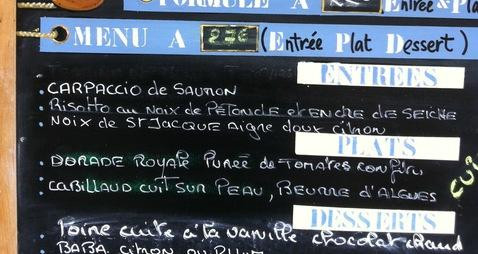 FORMULE A Entrée & Pla
MENU A 27€ (Entrée Plat Dessert)
ENTREES
. CARPACCIO de SAUMON
. Risotto au Noix de PÉTONCLE et ENCRE DE SEICHE
. Noix de St JACQUE Aigre doux citron
PLATS
. DORADE ROYALE Purée de TOMATES CONFITU
. CABILLAUD CUIT SUR PEAU, BEURRE D'ALGUES
CUI
DESSERTS
Poire cuite à la vanille chocolat chaud
. BABA CITRON OU RHUM